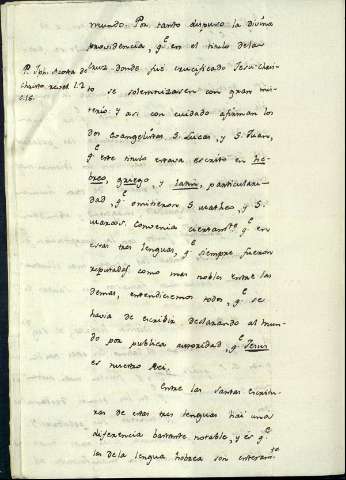 mundo. Por tanto dispuso la divina
providencia, qᵉ en el titulo de la
Cruz donde fué crucificado Jesu-Chris-
to se solemnizasen con gran mis-
terio: y asi con cuidado afirman los
dos Evangelistas S. Lucas, y S. Juan,
qᵉ este titulo estava escrito en he-
breo, griego, y latin, particulari-
dad, qᵉ omitieron S. Matheo, y S.
Marcos. Convenia ciertamᵗᵉ qᵉ en
estas tres lenguas, qᵉ siempre fueron
reputadas como mas nobles entre las
demas, entendiesemos todos, qᵉ se
havia de escribir declarando al mun-
do por publica autoridad, qᵉ Jesus
es nuestro Rei.
Entre las santas Escritu-
ras de estas tres lenguas hai una
diferencia bastante notable, y es qᵉ
las de la lengua hebrea son enteramᵗᵉ
P. Jph. Acosta de
Christo revel. l. 2
c. 16.